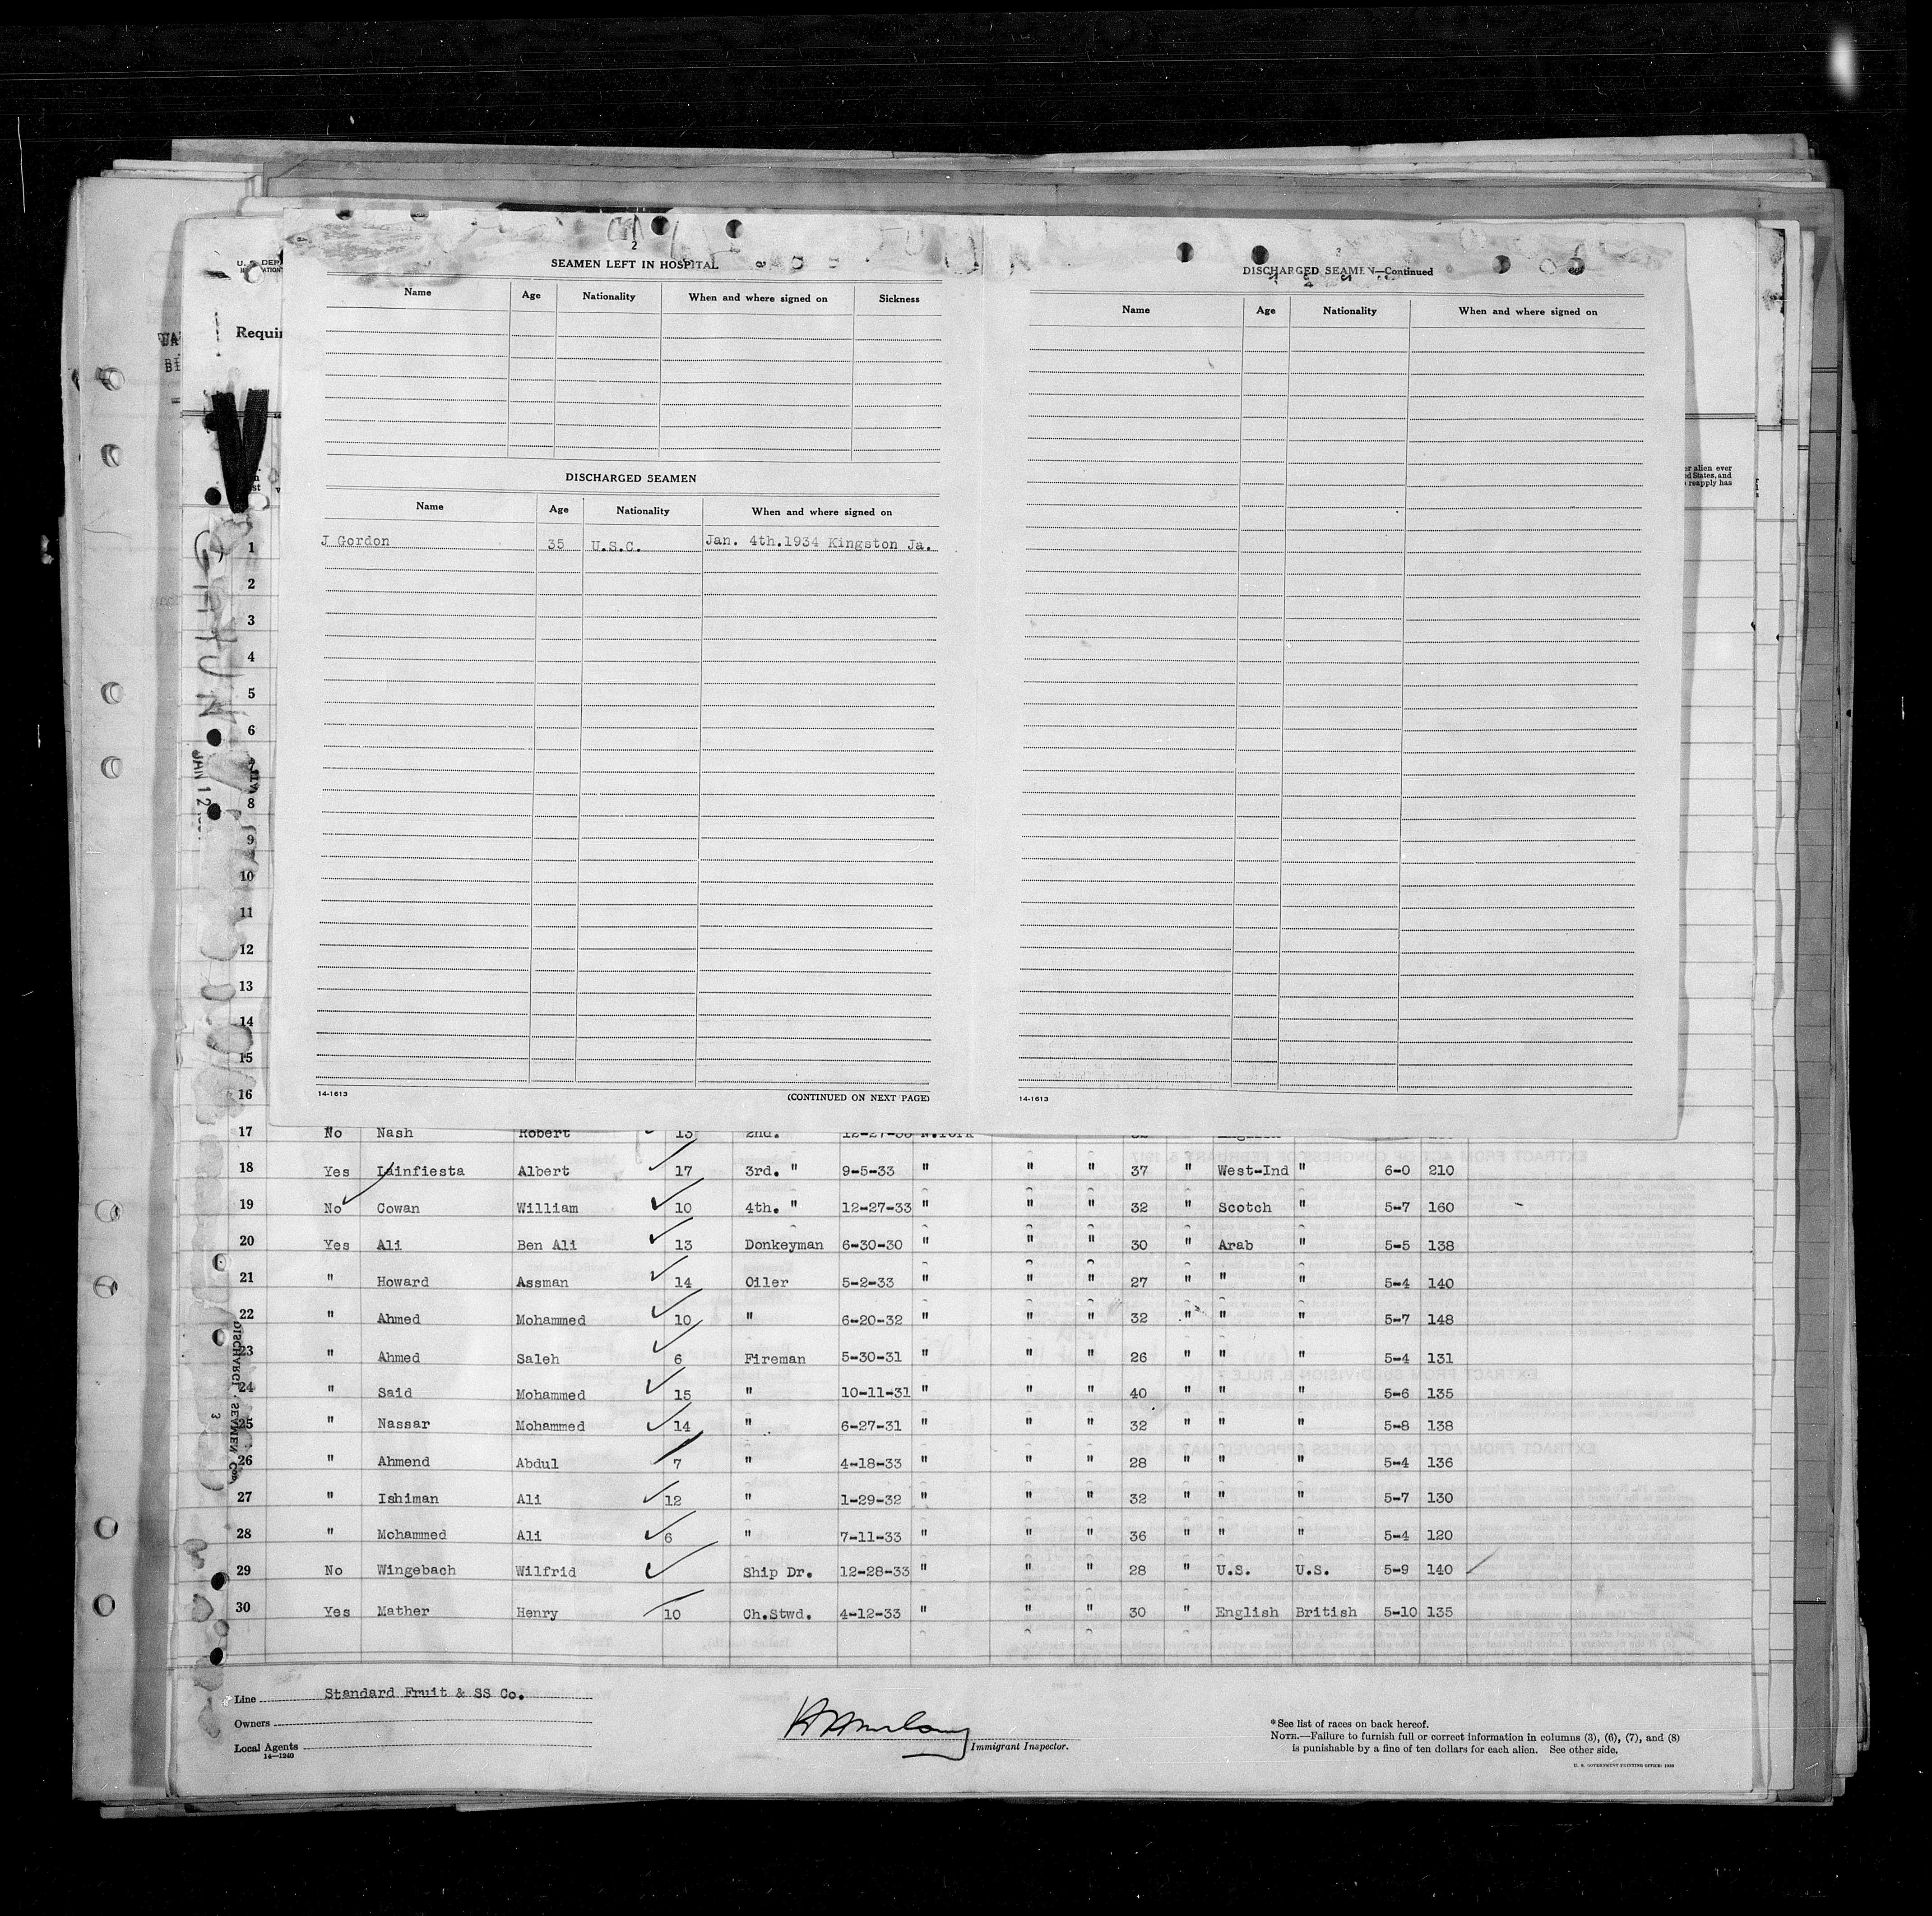 2
SEAMEN LEFT IN HOSPITAL
Name Age Nationality When and where signed on Sickness
DISCHARGED SEAMEN
Name Age Nationality When and where signed on
J Gordon 35 U.S.C. Jan. 4th.1934 Kingston Ja.
14-1613 (CONTINUED ON NEXT PAGE)
3
DISCHARGED SEAMEN—Continued
Name Age Nationality When and where signed on
14-1613
Requir
or alien ever
ed States, and
reapply has
GATUN
JAN 12
1
2
3
4
5
6
7
8
9
10
11
12
13
14
15
16
17 No Nash Robert 13 2nd. 12-27-33 N.York
18 Yes Lainfiesta Albert 17 3rd. " 9-5-33 " " " 37 " West-Ind " 6-0 210
19 No Cowan William 10 4th. " 12-27-33 " " " 32 " Scotch " 5-7 160
20 Yes Ali Ben Ali 13 Donkeyman 6-30-30 " " " 30 " Arab " 5-5 138
21 " Howard Assman 14 Oiler 5-2-33 " " " 27 " " " 5-4 140
22 " Ahmed Mohammed 10 " 6-20-32 " " " 32 " " " 5-7 148
23 " Ahmed Saleh 6 Fireman 5-30-31 " " " 26 " " " 5-4 131
24 " Said Mohammed 15 " 10-11-31 " " " 40 " " " 5-6 135
25 " Nassar Mohammed 14 " 6-27-31 " " " 32 " " " 5-8 138
26 " Ahmend Abdul 7 " 4-18-33 " " " 28 " " " 5-4 136
27 " Ishiman Ali 12 " 1-29-32 " " " 32 " " " 5-7 130
28 " Mohammed Ali 6 " 7-11-33 " " " 36 " " " 5-4 120
29 No Wingebach Wilfrid Ship Dr. 12-28-33 " " " 28 " U.S. U.S. 5-9 140
30 Yes Mather Henry 10 Ch.Stwd. 4-12-33 " " " 30 " English British 5-10 135
Line Standard Fruit & SS Co.
Owners
Local Agents
14—1240
Immigrant Inspector.
*See list of races on back hereof.
NOTE.—Failure to furnish full or correct information in columns (3), (6), (7), and (8)
is punishable by a fine of ten dollars for each alien. See other side.
U. S. GOVERNMENT PRINTING OFFICE: 1933